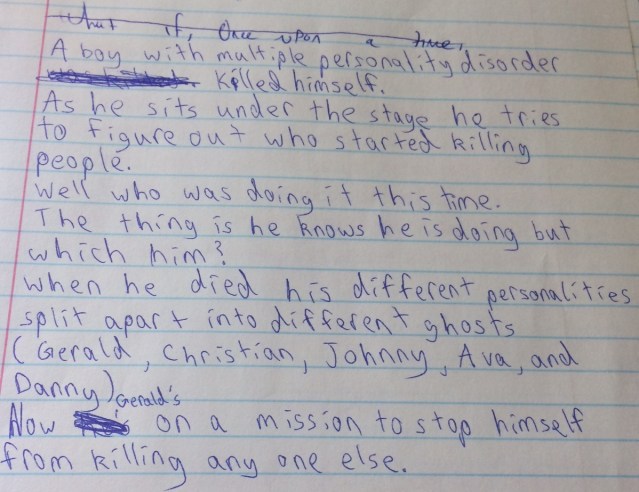 What if, Once upon a time,
A boy with multiple personality disorder
killed himself.
As he sits under the stage he tries
to figure out who started killing
people.
Well who was doing it this time.
The thing is he knows he is doing but
which him?
When he died his different personalities
split apart into different ghosts
(Gerald, Christian, Johnny, Ava, and
Danny)
Now Gerald's on a mission to stop himself
from killing any one else.